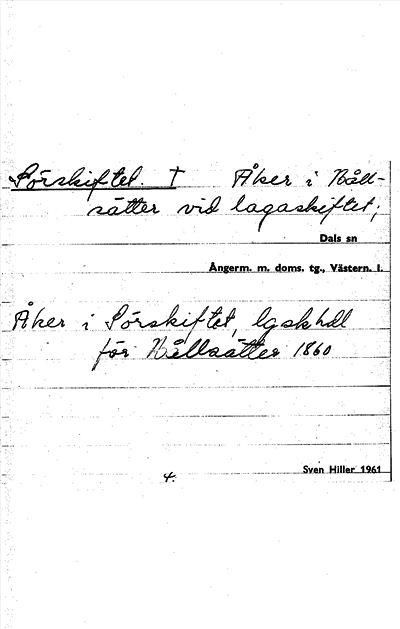 Sörskiftet. † Åker i Håll-
sätter vid lagaskiftet;
Dals sn
Ångerm. m. doms. tg., Västern. l.
Åker i Sörskiftet, lgskhdl
för Hållsätter 1860
Sven Hiller 1961
4.